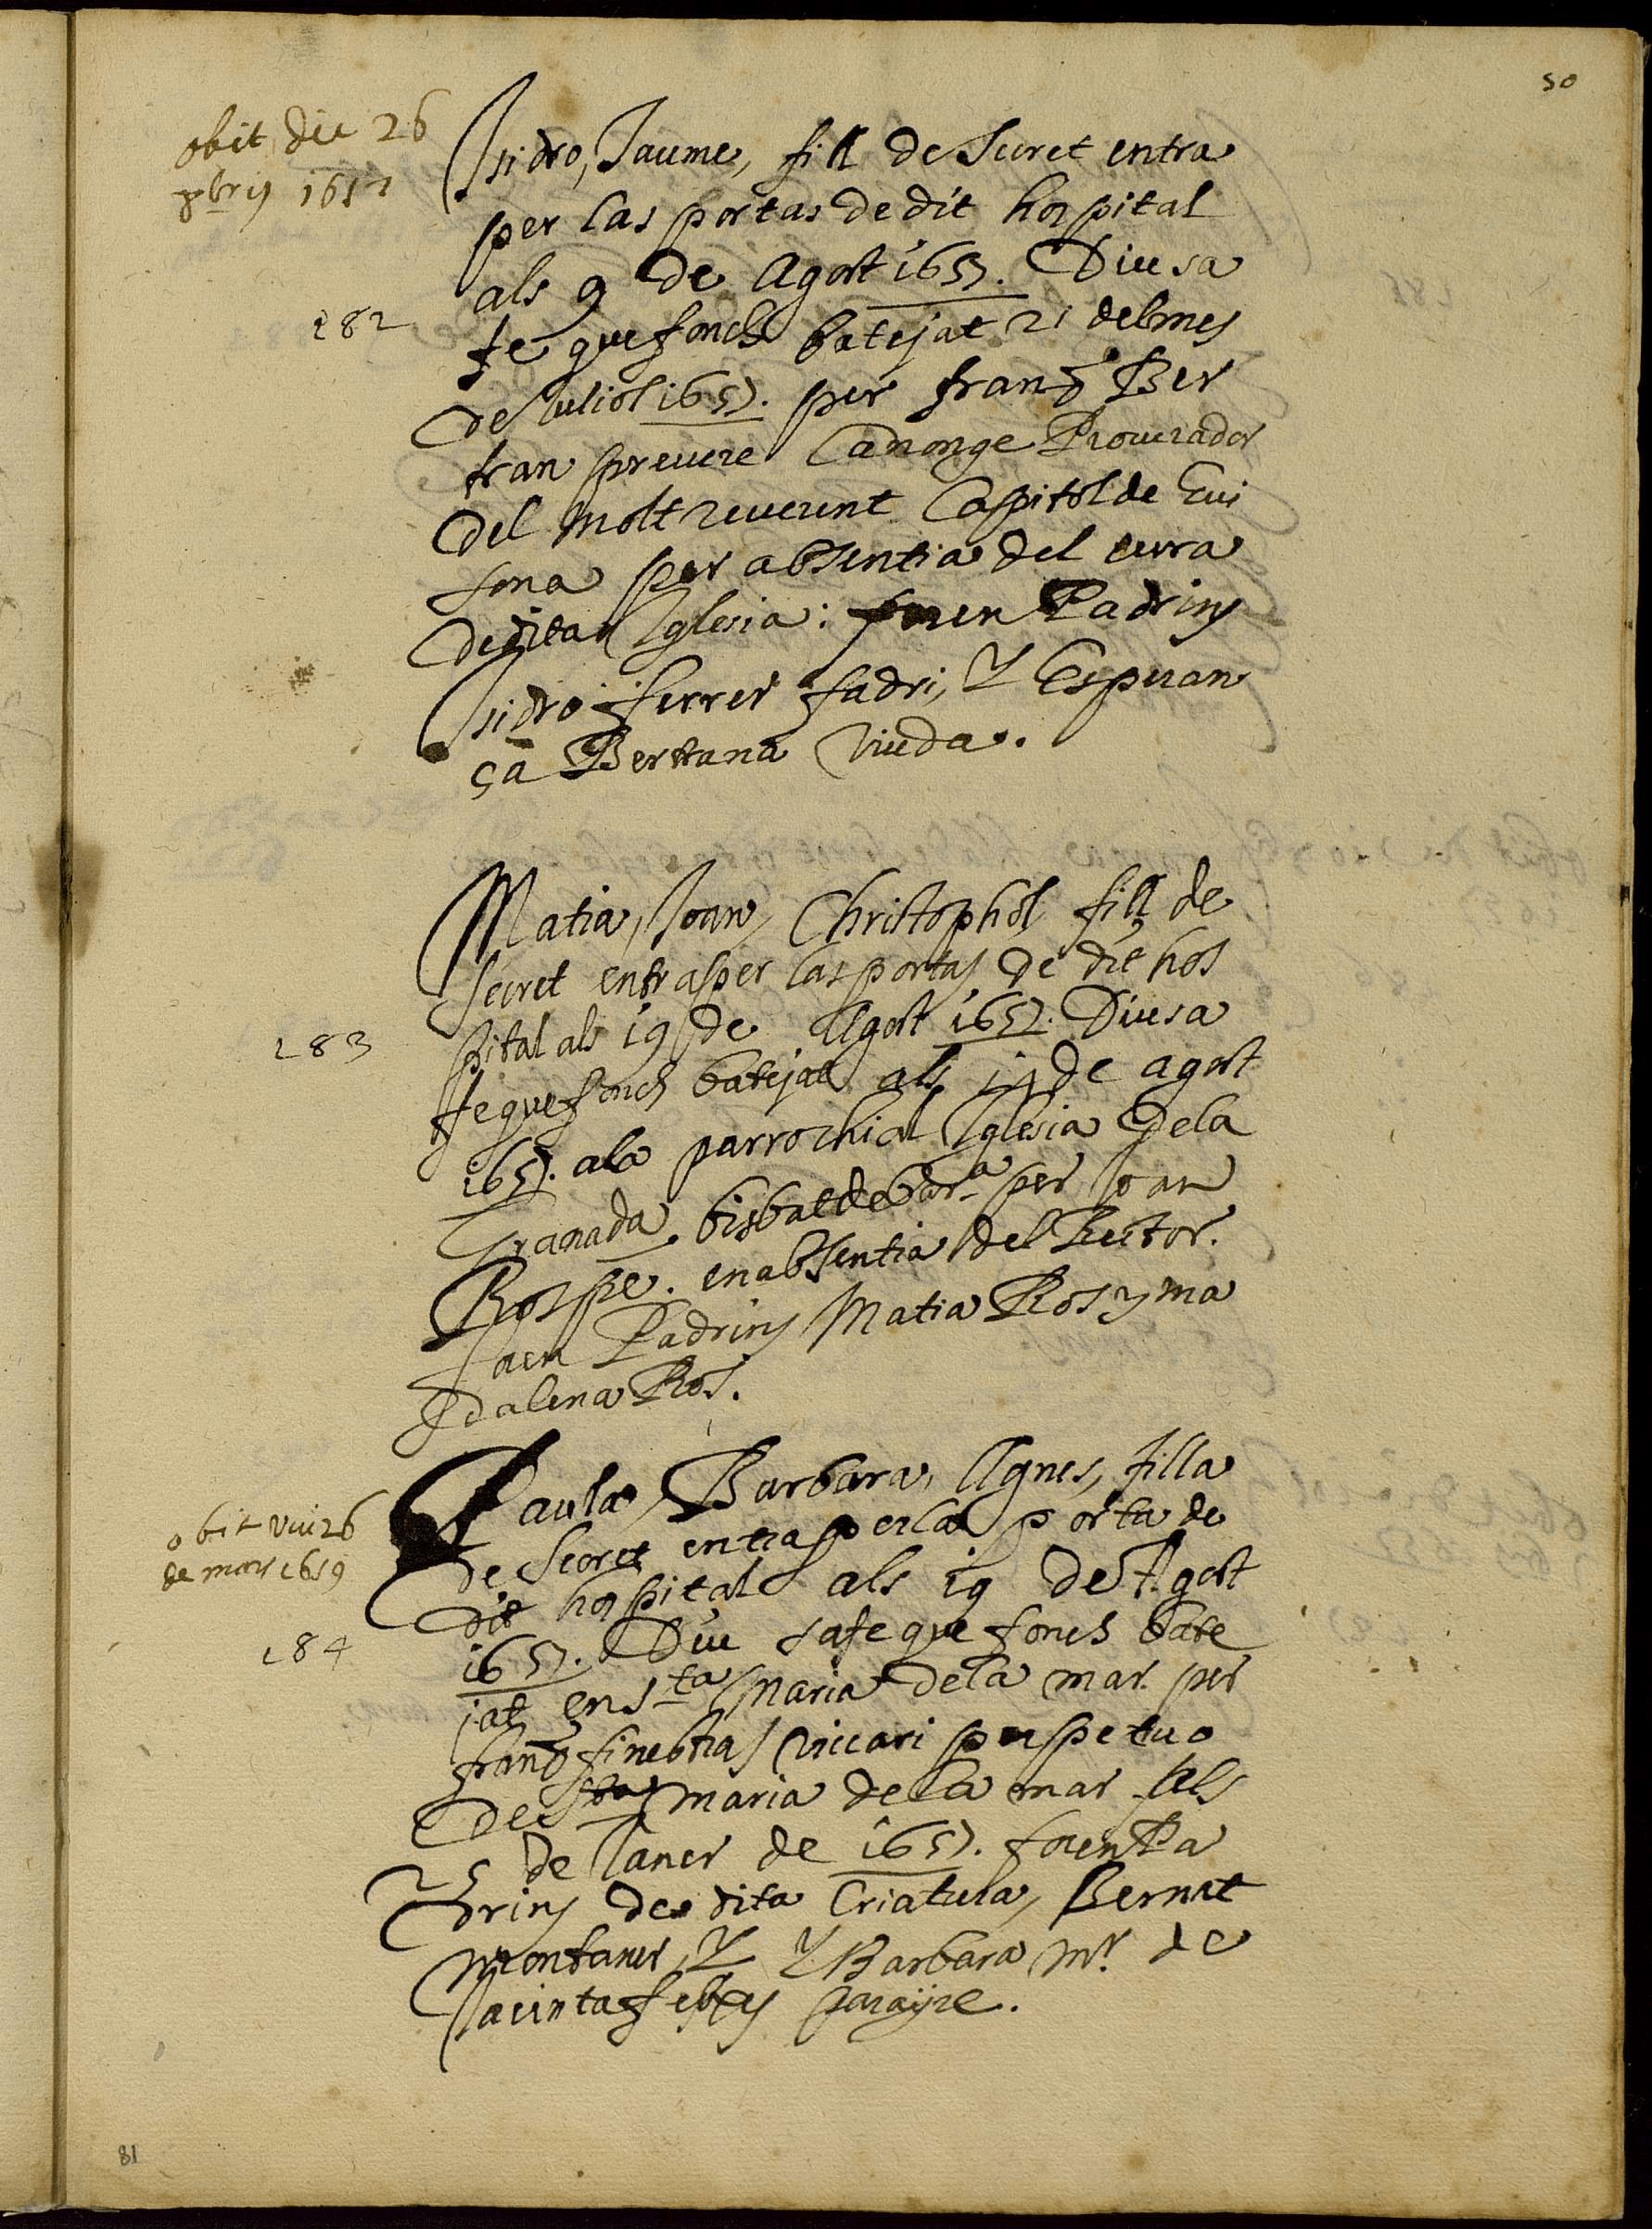 50
obit die 26
8bris 1657
Isidro, Jaume, fill de Secret entra
per las portas de dit hospital
als 9 de Agost 1657. Diu sa
282
fe que fonch batejat 21 del mes
de Juliol 1657. per Franc Ber
tran prevere Canonge Procurador
del molt reverent Capitol de Gui
sona per absentia del cura
de dita Iglesia: foren Padrins
Isidro ferrer fadri, y Esperan
ça Bertrana viuda.
Matia, Joan, Christophol fill de
secret entra per las portas de dit hos
pital als 19 de Agost 1657. Diu sa
283
fe que fonch batejat als 14 de agost
1657. ala parrochial Iglesia dela
Granada. bisbat de Barª per Joan
Ros pre. en absentia del Rector.
foren Padrins Matia Ros y ma
dalena Ros.
Paula, Barbara, Agnes, filla
obit vui 26
de mars 1659
de Secret entra per la porta de
dit hospital als 19 de Agost
284
1657. Diu sa fe que fonch bate
jat en Sta Maria dela mar. per
franc finestras viccari perpetuo
de Sta maria de la mar als
25 de Janer de 1657. foren Pa
drins de dita Criatura, Bernat
montaner, y y Barbara mr. de
Jacinta febres parayre.
81